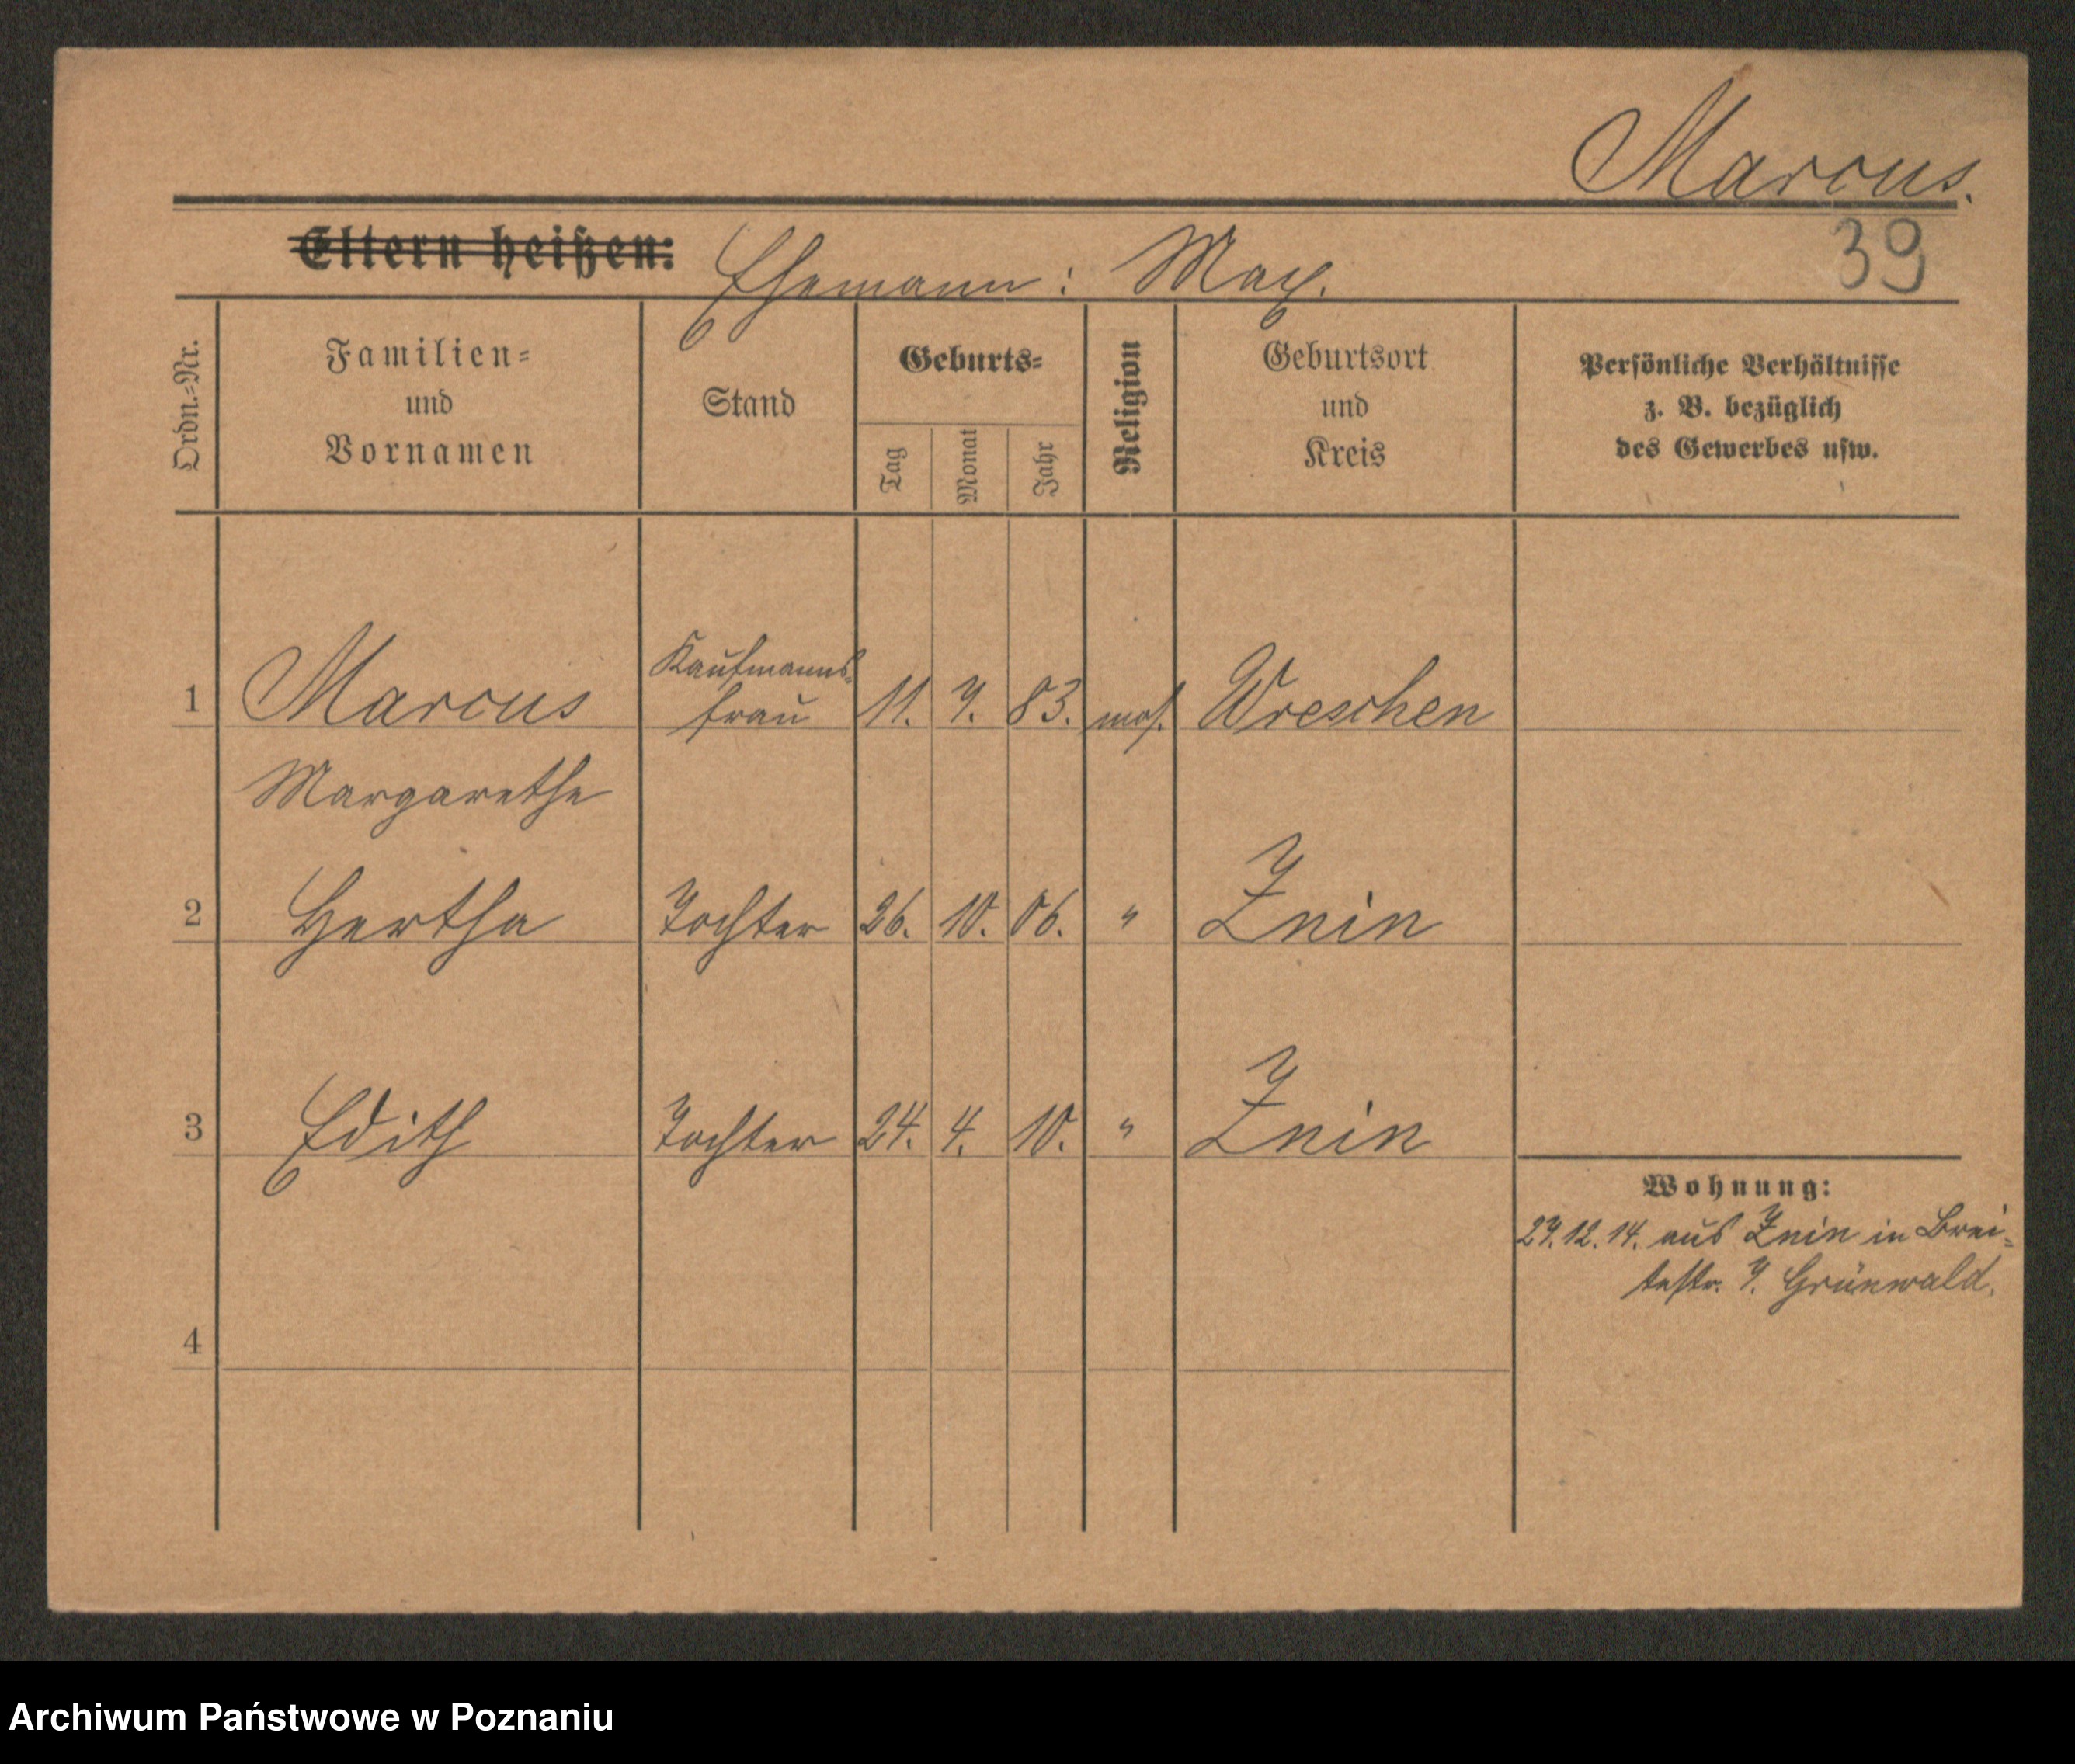 Marcus.
39
Eltern heißen: Ehemann: Max.
Ordn.-Nr.
Familien-
und
Vornamen
Stand
Geburts-
Tag
Monat
Jahr
Religion
Geburtsort
und
Kreis
Persönliche Verhältnisse
z. B. bezüglich
des Gewerbes usw.
1 Marcus Kaufmanns-
frau 11. 7. 83. mos. Wreschen
Margarethe
2 Hertha Tochter 26. 10. 06. " Znin
3 Edith Tochter 24. 4. 10. " Znin
4
Wohnung:
27.12.14. aus Znin in Brei-
testr. 7. Grünwald.
Archiwum Państwowe w Poznaniu